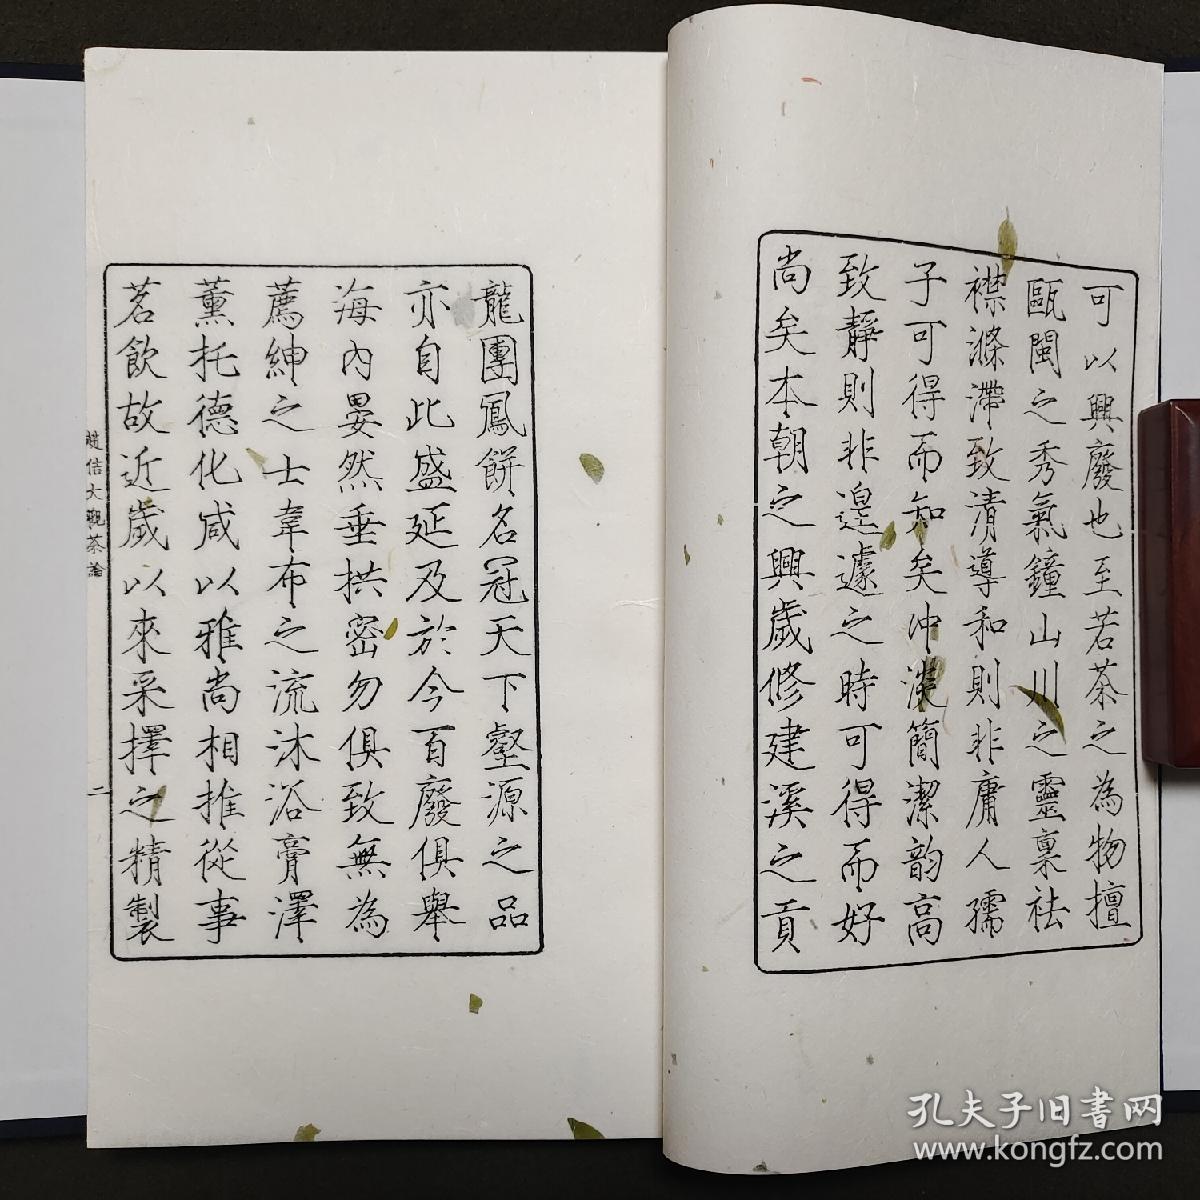 可以興廢也至若茶之為物擅
甌閩之秀氣鐘山川之靈稟祛
襟滌滯致清導和則非庸人孺
子可得而知矣沖澹簡潔韵高
致靜則非遑遽之時可得而好
尚矣本朝之興歲修建溪之貢
龍團鳳餅名冠天下壑源之品
亦自此盛延及於今百廢俱舉
海內晏然垂拱密勿俱致無為
薦紳之士韋布之流沐浴膏澤
薰托德化咸以雅尚相推從事
茗飲故近歲以來采擇之精製
趙佶大觀茶論
二
孔夫子旧书网
www.kongfz.com